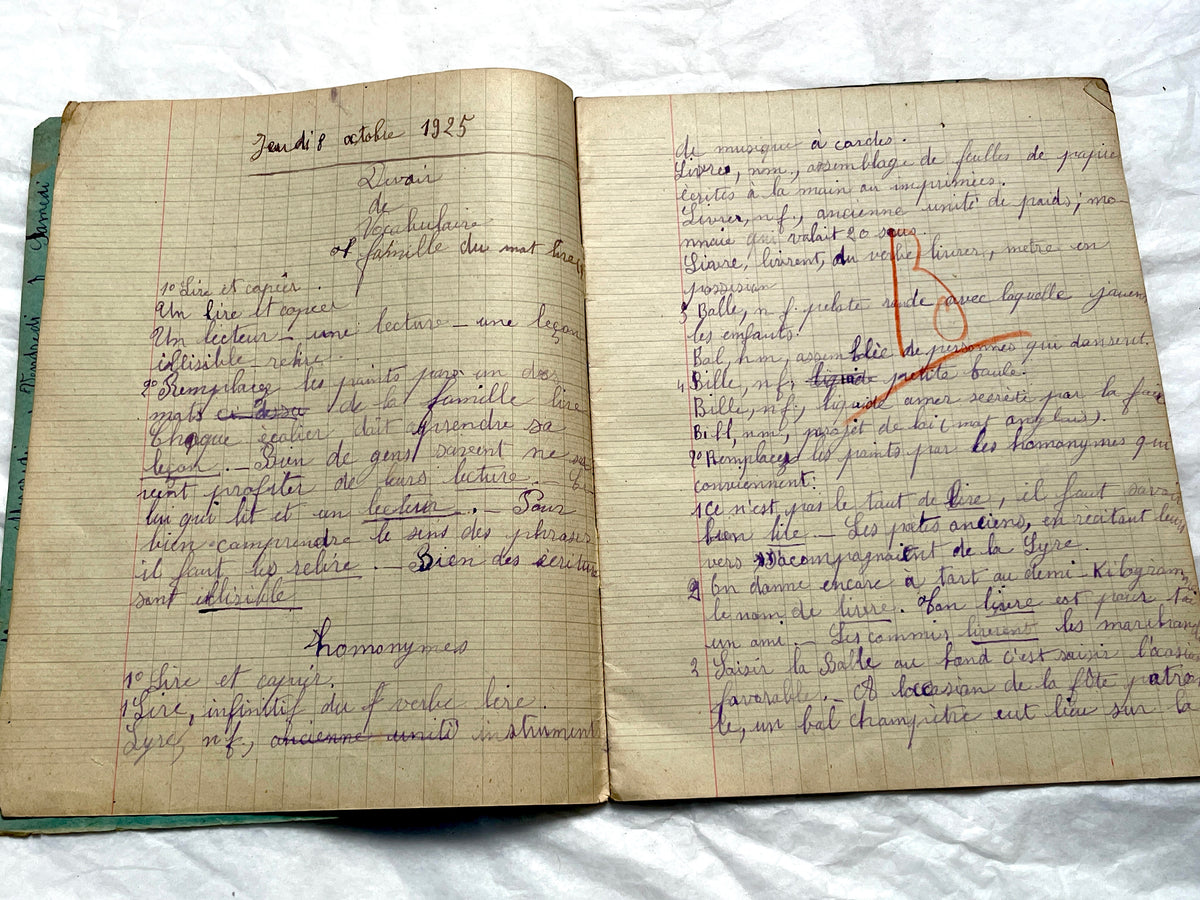 Jeudi 8 octobre 1925
Devoir
de
Vocabulaire
famille du mot lire
1º Lire et copier.
Un lire et copier
Un lecteur – une lecture – une leçon
illisible – relire.
2º Remplacez les points par un des
mots de la famille lire
Chaque écolier doit apprendre sa
leçon. – Bien de gens savent ne sa-
vent profiter de leurs lecture. – Ce-
lui qui lit et un lecteur. – Pour
bien comprendre le sens des phrases
il faut les relire. – Bien des écriture
sont illisible.
homonymes
1º Lire et copier.
1 Lire, infinitif du f verbe lire.
Lyre, nf, ancienne unité instrument
de musique à cordes.
Livre, nm., assemblage de feuilles de papier
écrites à la main ou imprimées.
Livrer, nf., ancienne unité de poids; mo-
nnaie qui valait 20 sous.
Livre, livrent, du verbe livrer, metre en
possesian
3 Balle, nf. pelote ronde avec laquelle jouent
les enfants.
Bal, nm, assemblée de personnes qui dansent.
4 Bille, nf, liquide petite boule.
Bille, nf., liquide amer secrété par la foie
Bill, nm, projet de loi (mot anglais).
2º Remplacez les points par les homonymes qui
conviennent:
1 Ce n'est pas le tout de lire, il faut savoir
bien lire – Les poètes anciens, en récitant leurs
vers s'acompagnaient de la Lyre.
2 On donne encore à tort au demi-Kilogram
le nom de livre. Ton livre est pour toi
un ami. – Les commis livrent les marchand
3 Saisir la Balle au bond c'est saisir l'ocasion
favorable. – A l'ocasion de la fête patrona
le, un bal champêtre eut lieu sur la
B
Samedi
Vendredi